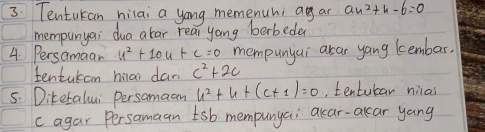 3. Tentukan nilai a yang memenuhi agar au²+u-6=0
mempunyai dua akar real yang berbeda
4. Persamaan u²+10u+c=0 mempunyai akar yang kembar.
tentukan nilai dari c²+2c
5. Diketahui persamaan u²+u+(c+1)=0, tentukan nilai
c agar persamaan tsb mempunyai akar-akar yang